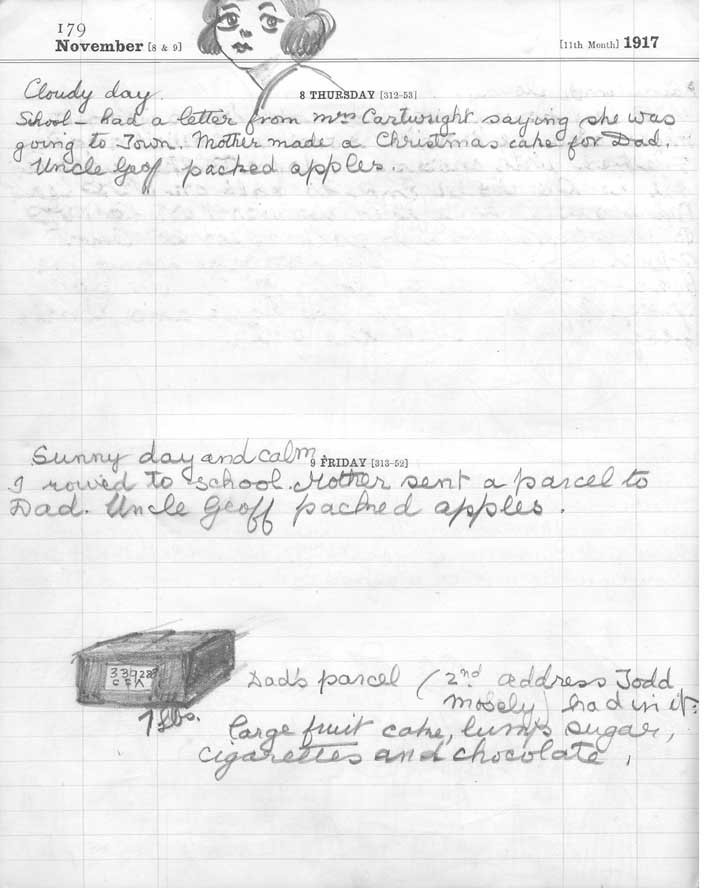 179
November [8 & 9]
[11th Month] 1917
Cloudy day.
8 THURSDAY [312-53]
School - had a letter from Mrs Cartwright saying she was
going to Town. Mother made a Christmas cake for Dad.
Uncle Geoff packed apples.
Sunny day and calm.
9 FRIDAY [313-52]
I rowed to School. Mother sent a parcel to
Dad. Uncle Geoff packed apples.
33928
CFA
7 lbs.
Dad's parcel (2nd address Todd
Mosely) had in it:
large fruit cake, lump sugar,
cigarettes and chocolate,